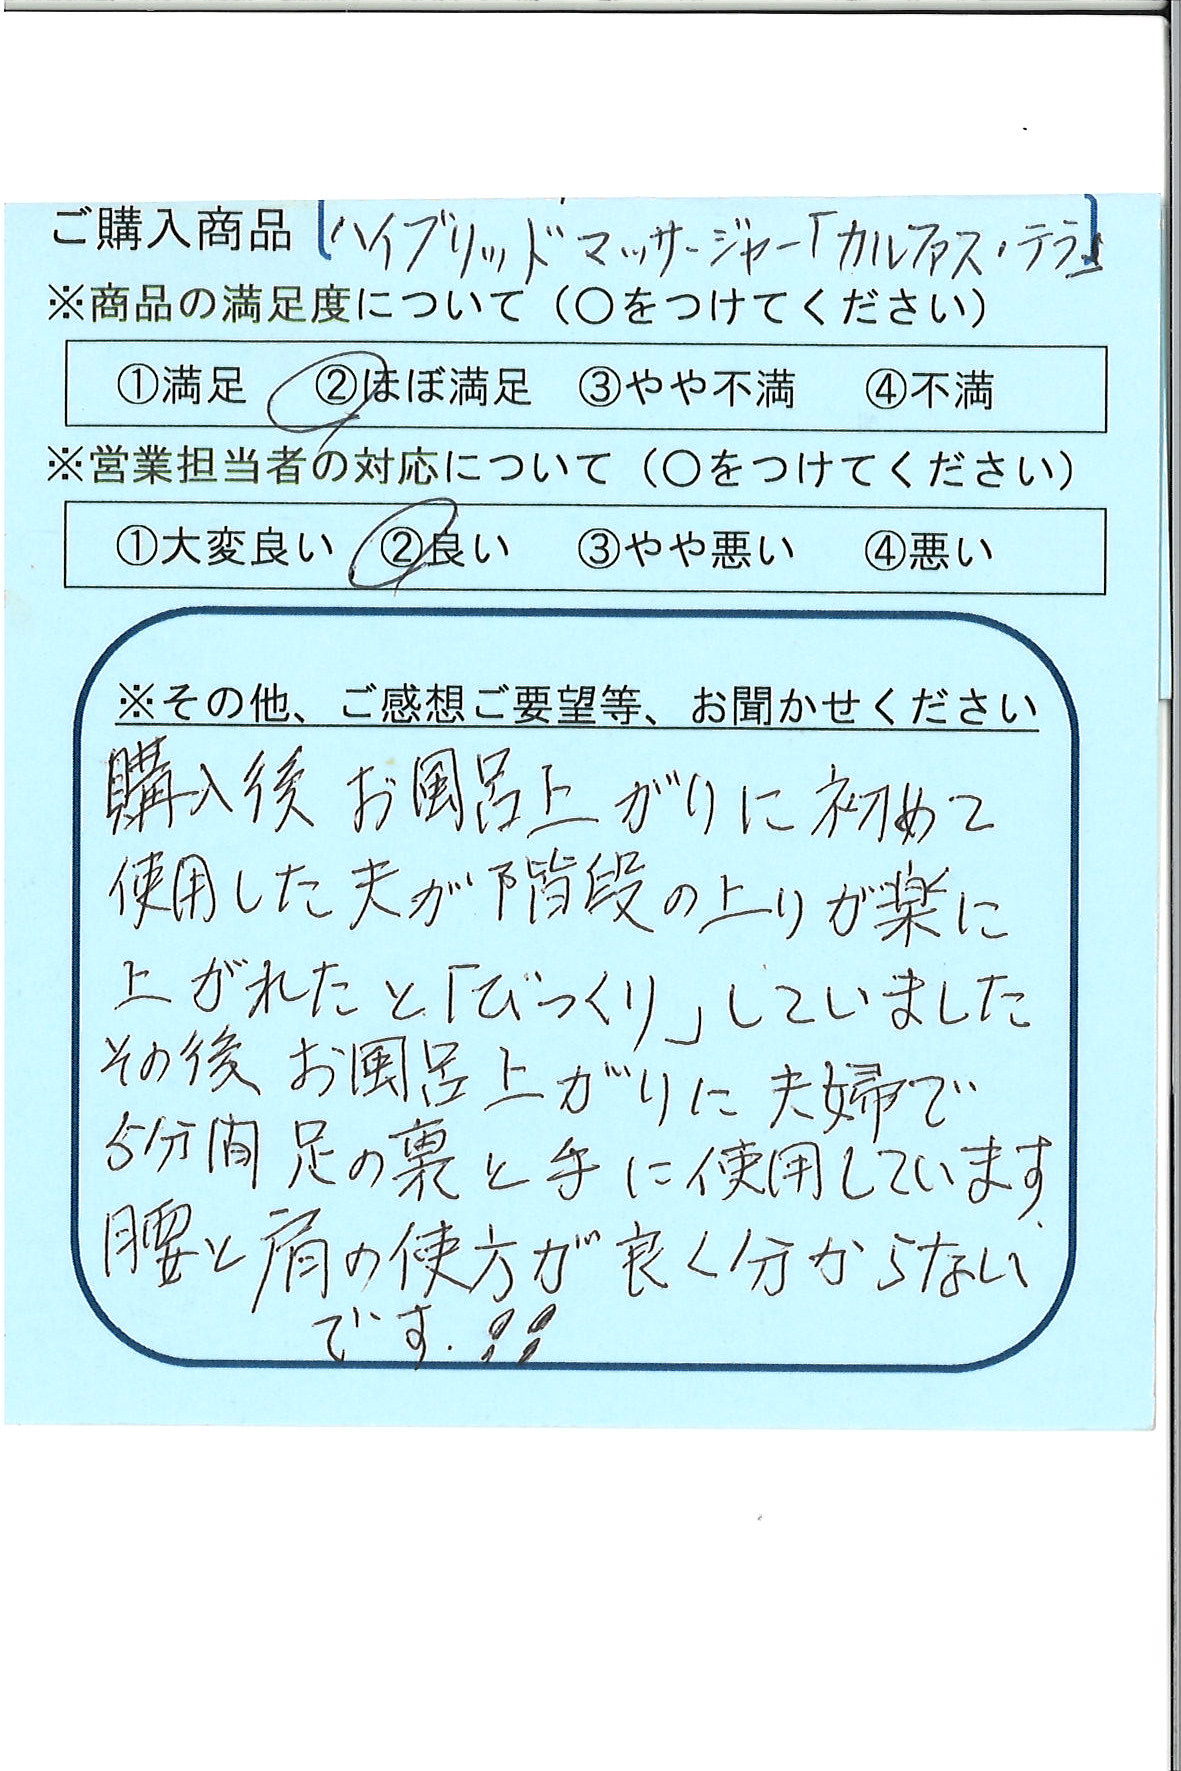 ご購入商品 [ハイブリッドマッサージャー「カルファス・テラ」]
※商品の満足度について（○をつけてください）
①満足 ②ほぼ満足 ③やや不満 ④不満
※営業担当者の対応について（○をつけてください）
①大変良い ②良い ③やや悪い ④悪い
※その他、ご感想ご要望等、お聞かせください
購入後 お風呂上がりに初めて
使用した夫が階段の上りが楽に
上がれたと「びっくり」していました
その後 お風呂上がりに夫婦で
5分間足の裏と手に使用しています.
腰と肩の使方が良く分からない
です.!!